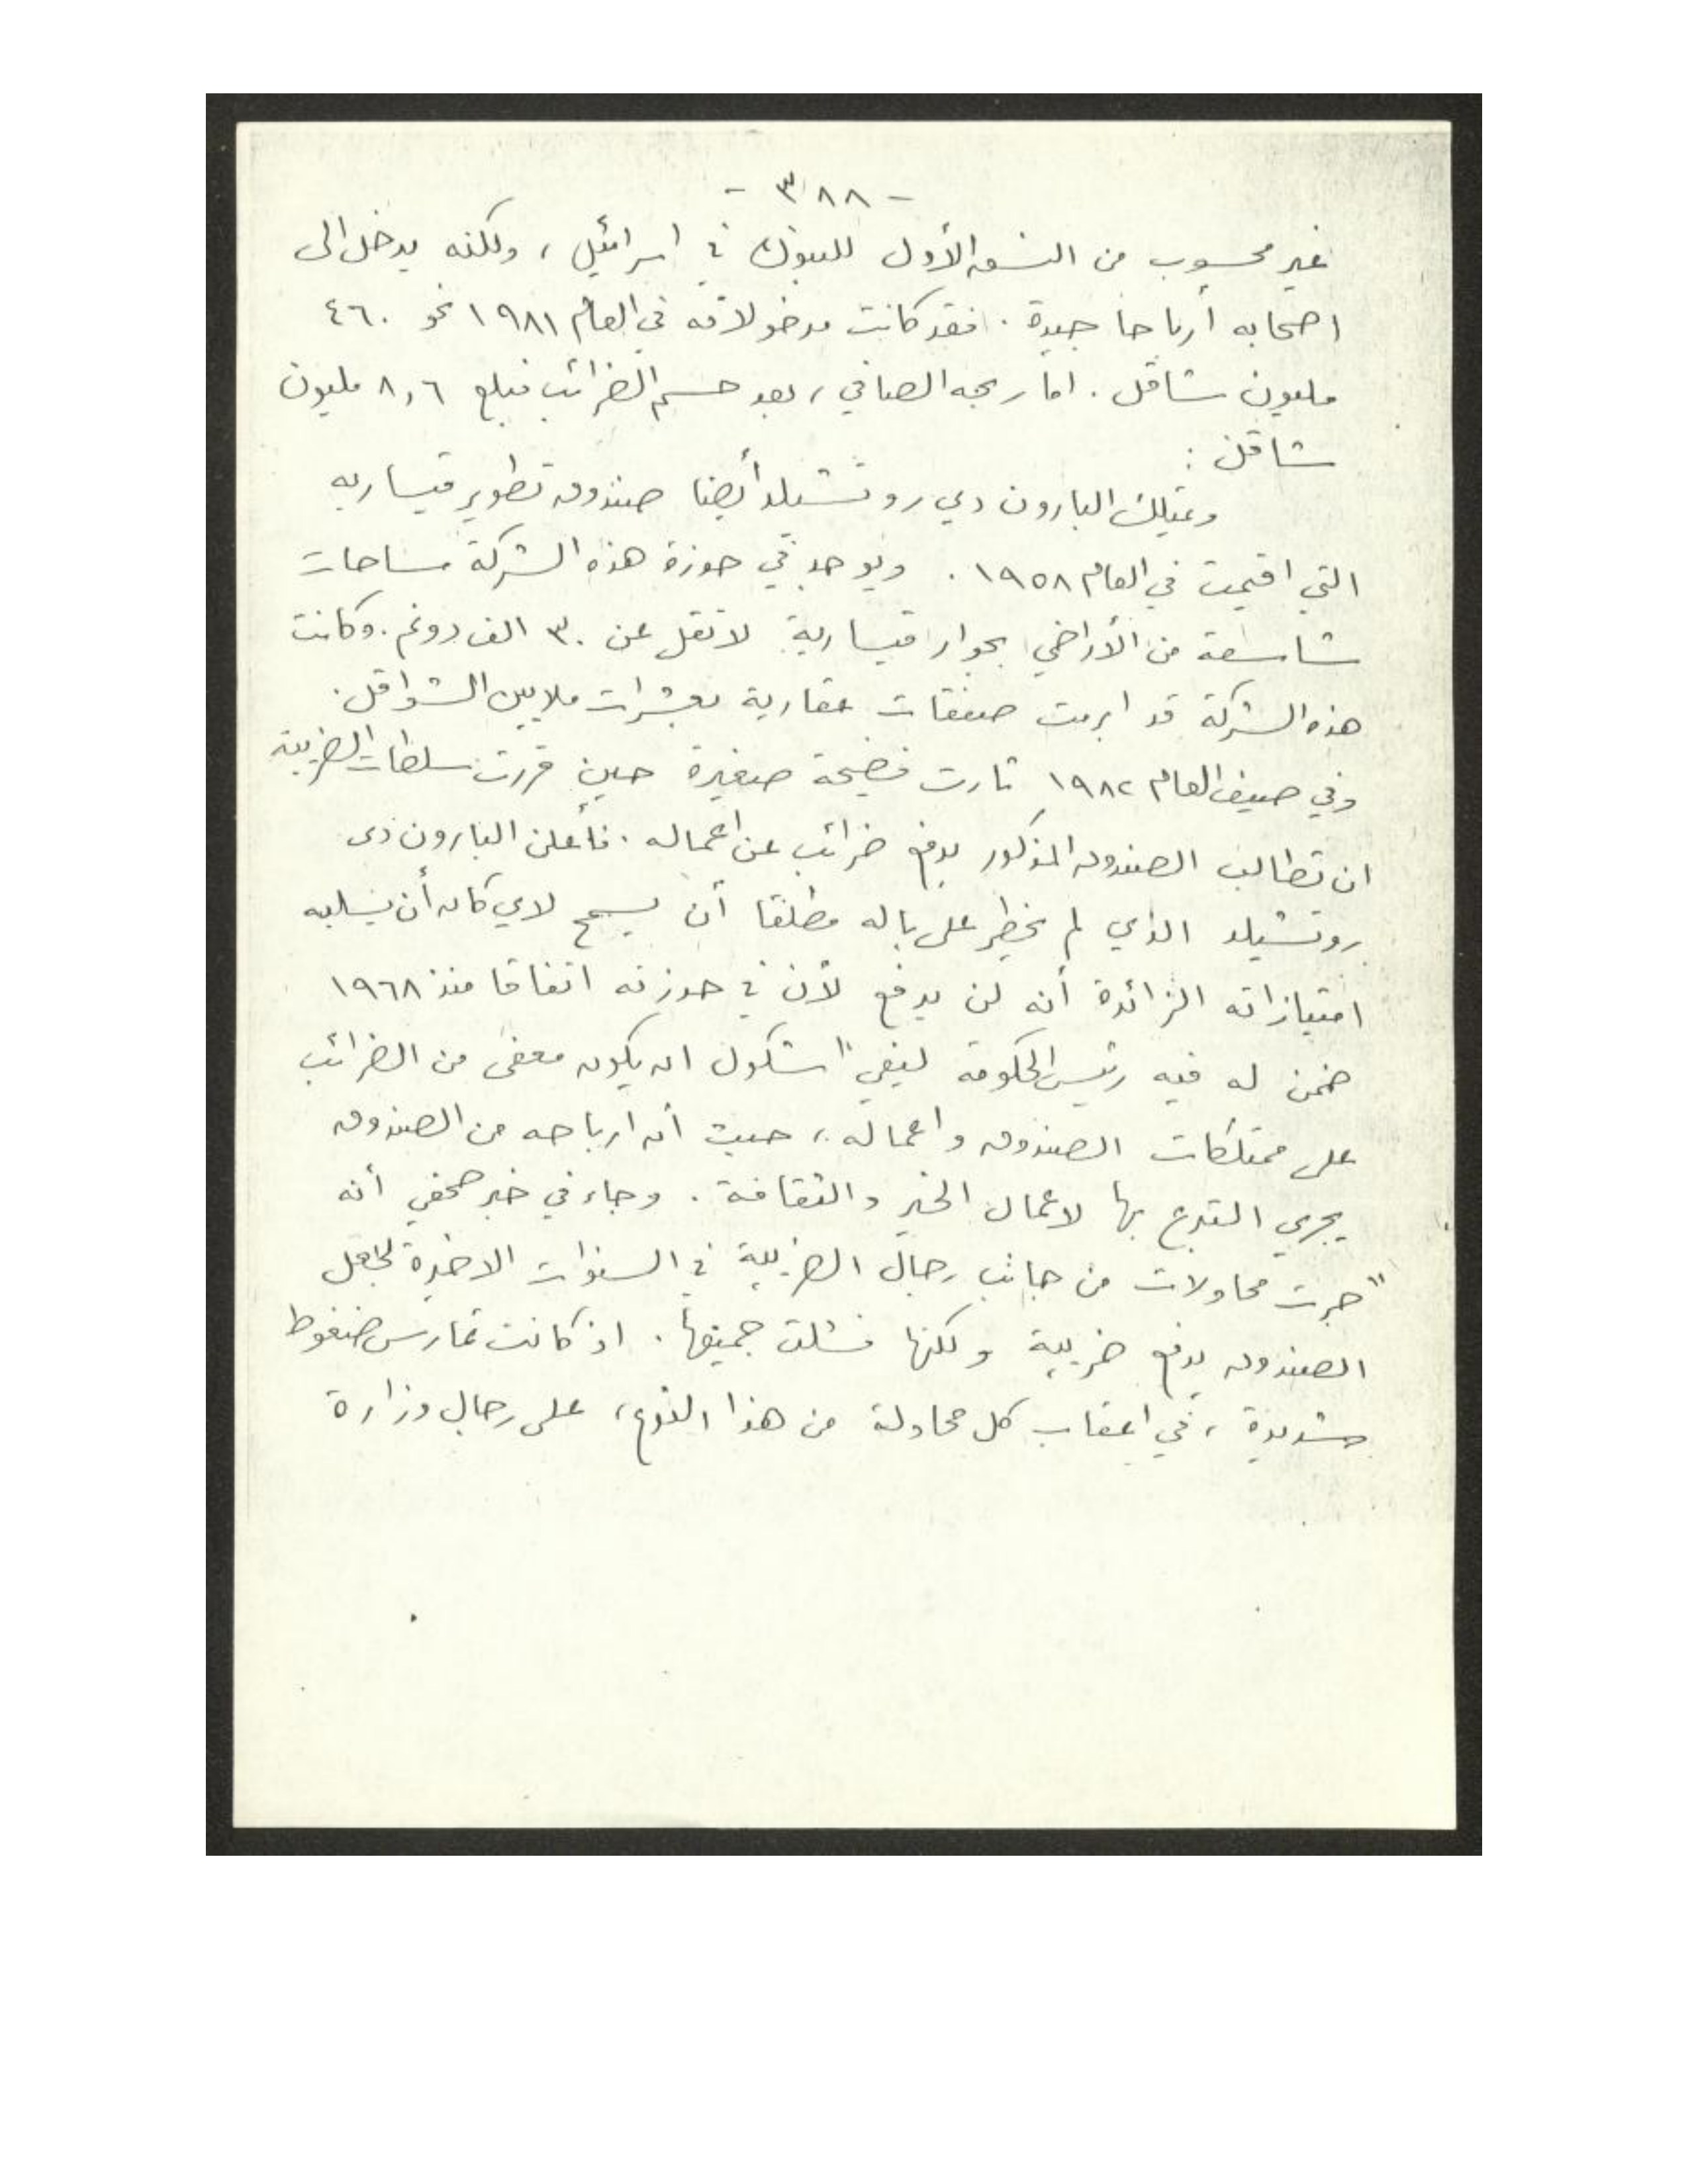 - ٣٨٨ -
غير محسوب من النسق الأول للبنوك في اسرائيل ، ولكنه يدخل الى
اصحابه أرباحا جيدة . فقد كانت مدخولاته في العام ١٩٨١ نحو ٤٦٠
مليون شاقل . اما ربحه الصافي ، بعد حسم الضرائب فبلغ ٨,٦ مليون
شاقل :
ويمتلك البارون دي روتشيلد أيضا صندوق تطوير قيساريه
التي اقيمت في العام ١٩٥٨ . ويوجد في حوزة هذه الشركة مساحات
شاسعة من الأراضي بجوار قيسارية لا تقل عن ٣٠ الف دونم . وكانت
هذه الشركة قد ابرمت صفقات عقارية بعشرات ملايين الشواقل .
وفي صيف العام ١٩٨٢ ثارت فضيحة صغيرة حين قررت سلطات الضريبة
ان تطالب الصندوق المذكور بدفع ضرائب عن اعماله . فأعلن البارون دى
روتشيلد الذي لم يخطر على باله مطلقا أن يسمح لاي كان أن يسلبه
امتيازاته الزائدة أنه لن يدفع لأن في حوزته اتفاقا منذ ١٩٦٨
ضمن له فيه رئيس الحكومة ليفي اشكول ان يكون معفى من الضرائب
على ممتلكات الصندوق واعماله ، حيث أن ارباحه من الصندوق
يجري التبرع بها لاعمال الخير والثقافة . وجاء في خبر صحفي أنه
"جرت محاولات من جانب رجال الضريبة في السنوات الاخيرة لجعل
الصندوق يدفع ضريبة ولكنها فشلت جميعها . اذ كانت تمارس ضغوط
شديدة ، في اعقاب كل محاولة من هذا النوع ، على رجال وزارة